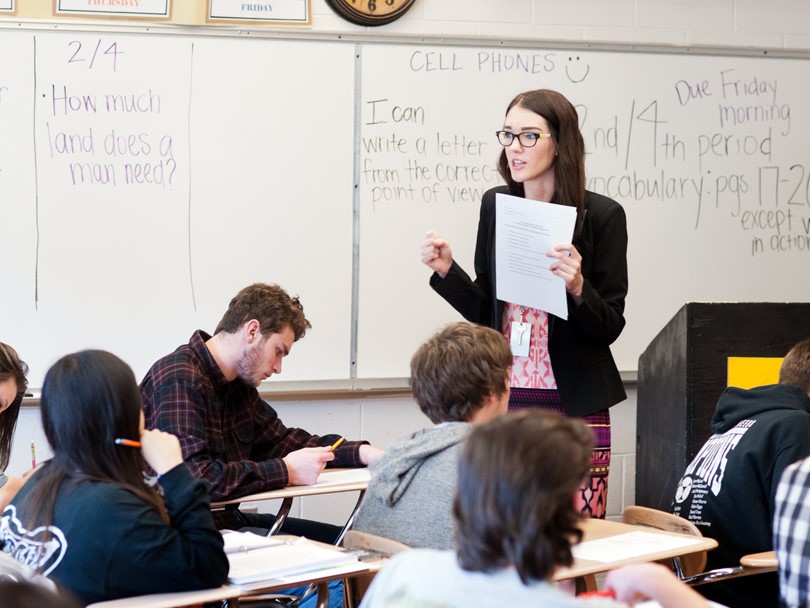 THURSDAY
FRIDAY
2/4
How much
land does a
man need?
CELL PHONES
I can
write a letter
from the correct
point of view
Due Friday
morning
2nd/4th period
vocabulary: pgs. 17-20
except
in action